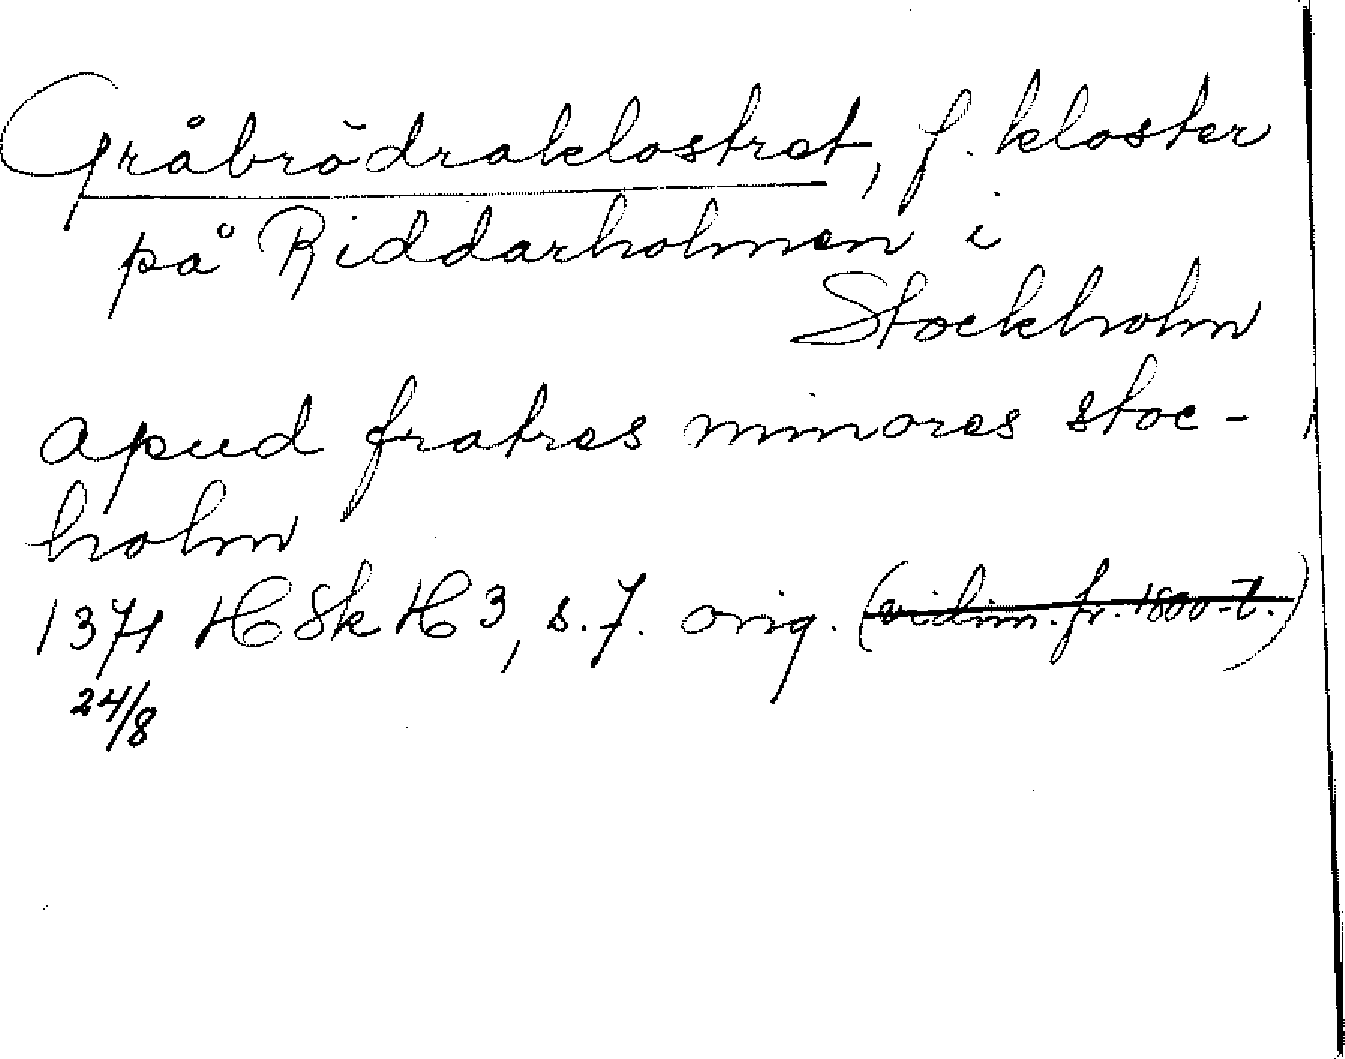 Gråbrödraklostret, f. kloster
på Riddarholmen i
Stockholm
apud fratres minores stoc-
holm
1371 HSk H 3, s. 7. orig. (vidim. fr. 1800-t.)
24/8